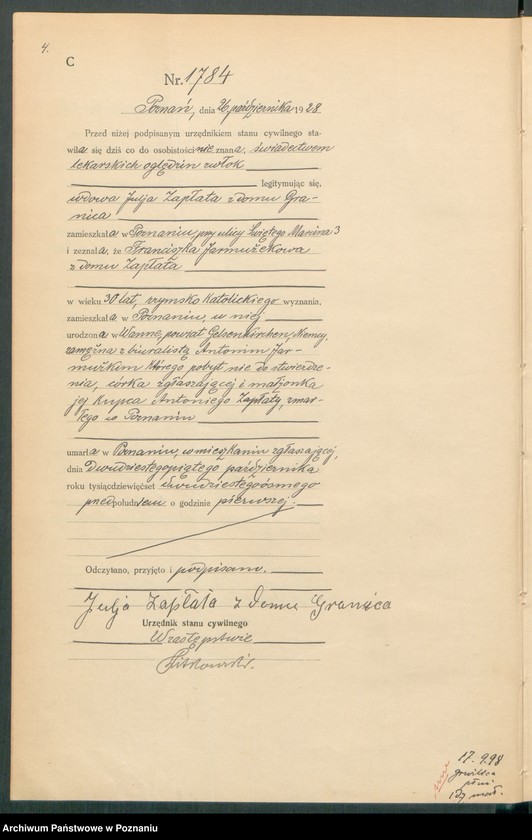 4.
C
Nr. 1784
Poznań, dnia 26 października 1928
Przed niżej podpisanym urzędnikiem stanu cywilnego sta-
wiła się dziś co do osobistości nie znana, świadectwem
lekarskich oględzin zwłok
legitymując się,
wdowa Julja Zapłata z domu Gra-
nica
zamieszkała w Poznaniu, przy ulicy Świętego Marcina 3
i zeznała, że Franciszka Jarmużkowa
z domu Zapłata
w wieku 30 lat, rzymsko katolickiego wyznania,
zamieszkała w Poznaniu, u niej
urodzona w Wanne, powiat Gelsenkirchen, Niemcy,
zamężna z biuralistą Antonim Jar-
mużkiem którego pobyt nie do stwierdze-
nia, córka zgłaszającej i małżonka
jej kupca Antoniego Zapłaty, zmar-
łego w Poznaniu
umarła w Poznaniu, w mieszkaniu zgłaszającej,
dnia dwudziestegopiątego października
roku tysiącdziewięćset dwudziestegoósmego
przedpołudniem o godzinie pierwszej.
Odczytano, przyjęto i podpisano.
Julja Zapłata z domu Granica
Urzędnik stanu cywilnego
W zastępstwie
17. 9.98
Archiwum Państwowe w Poznaniu